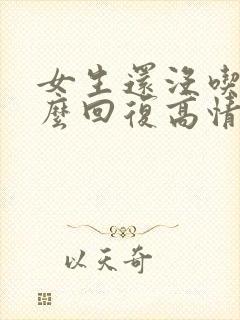 女生還沒喫
麼回復高情
以天奇